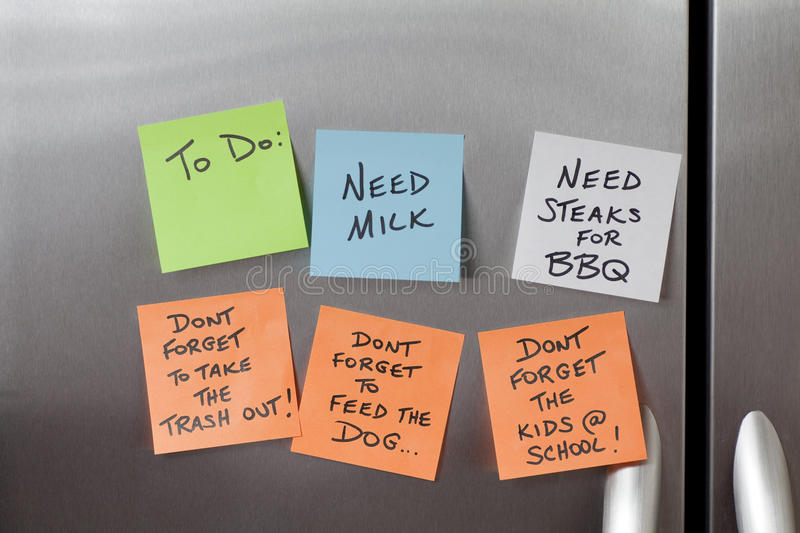 To Do:
NEED
MILK
NEED
STEAKS
FOR
BBQ
DONT
FORGET
TO TAKE
THE
TRASH OUT!
DONT
FORGET
TO
FEED THE
DOG...
DONT
FORGET
THE
KIDS @
SCHOOL!
dreamstime